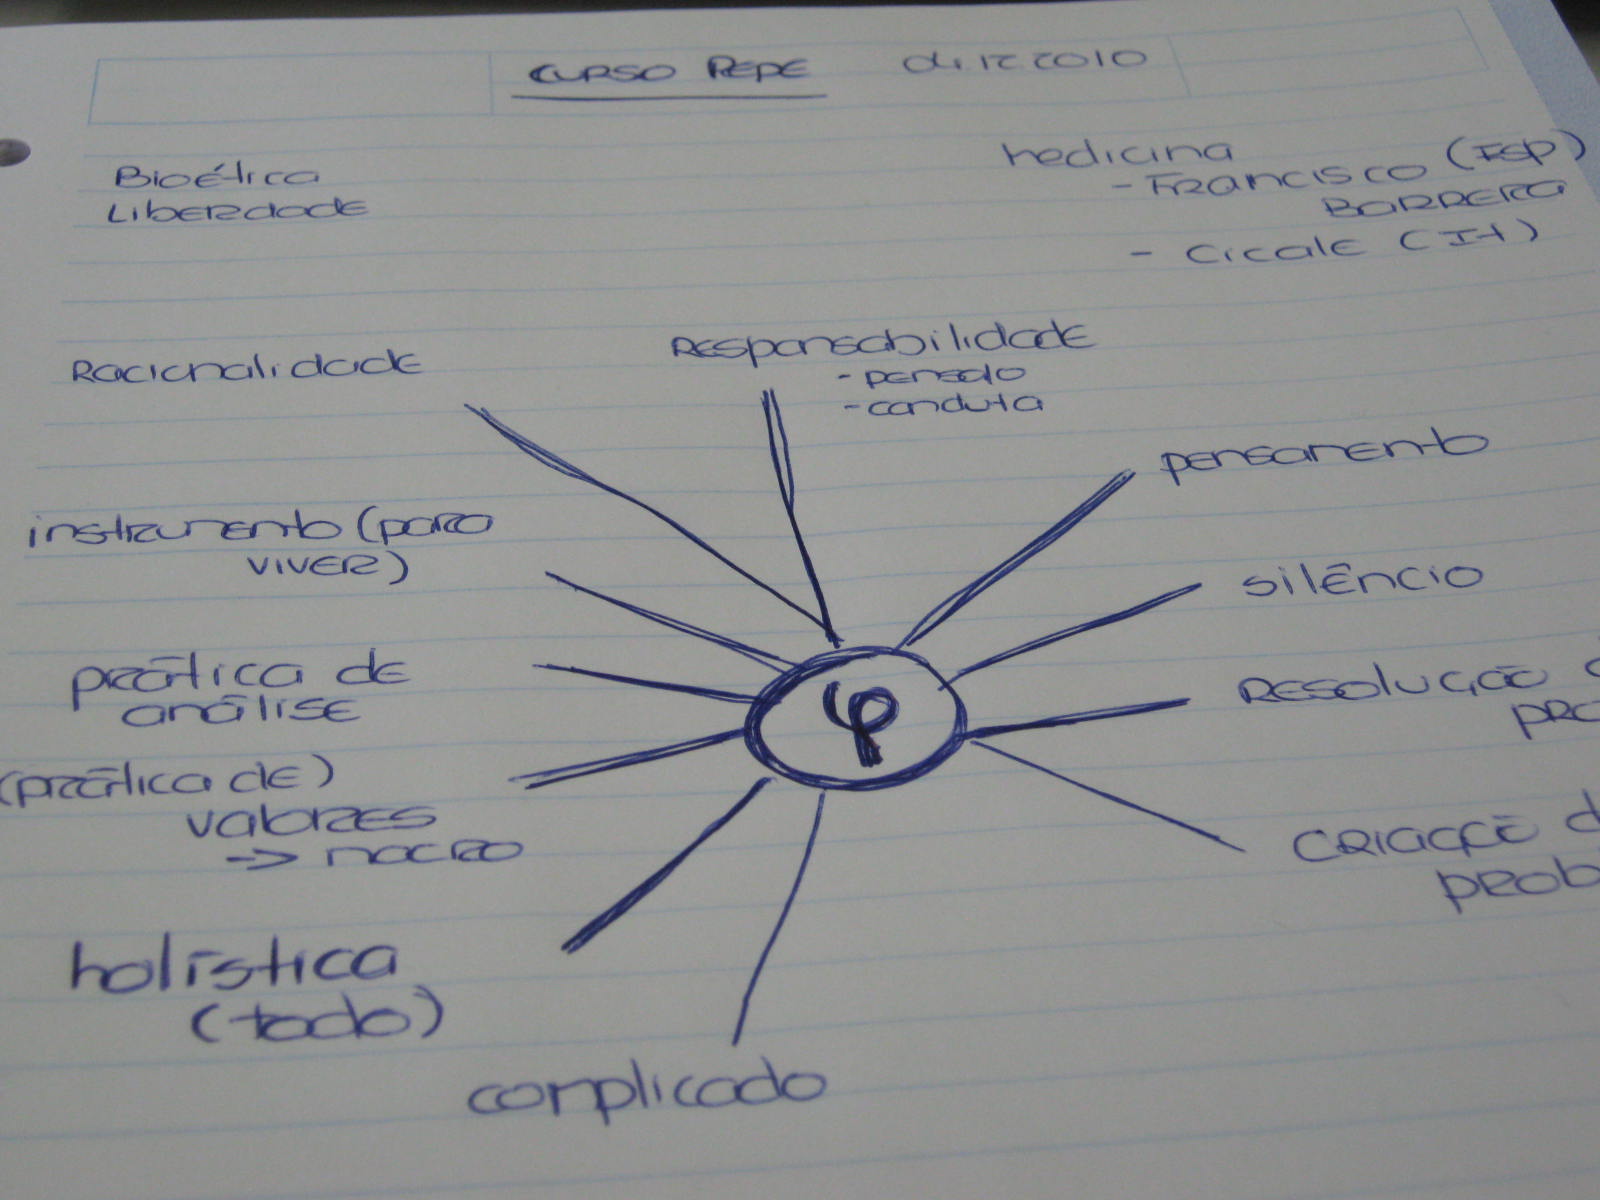 CURSO PEPE 04.12.2010
Bioética
Liberdade
Medicina
- Francisco (ESP)
Barrera
- Cicale (IT)
Racionalidade
Responsabilidade
- pensdo
- conduta
pensamento
instrumento (para
viver)
silêncio
prática de
análise
Resolução
(prática de)
valores
-> macro
criação d
prob
holística
(todo)
complicado
φ